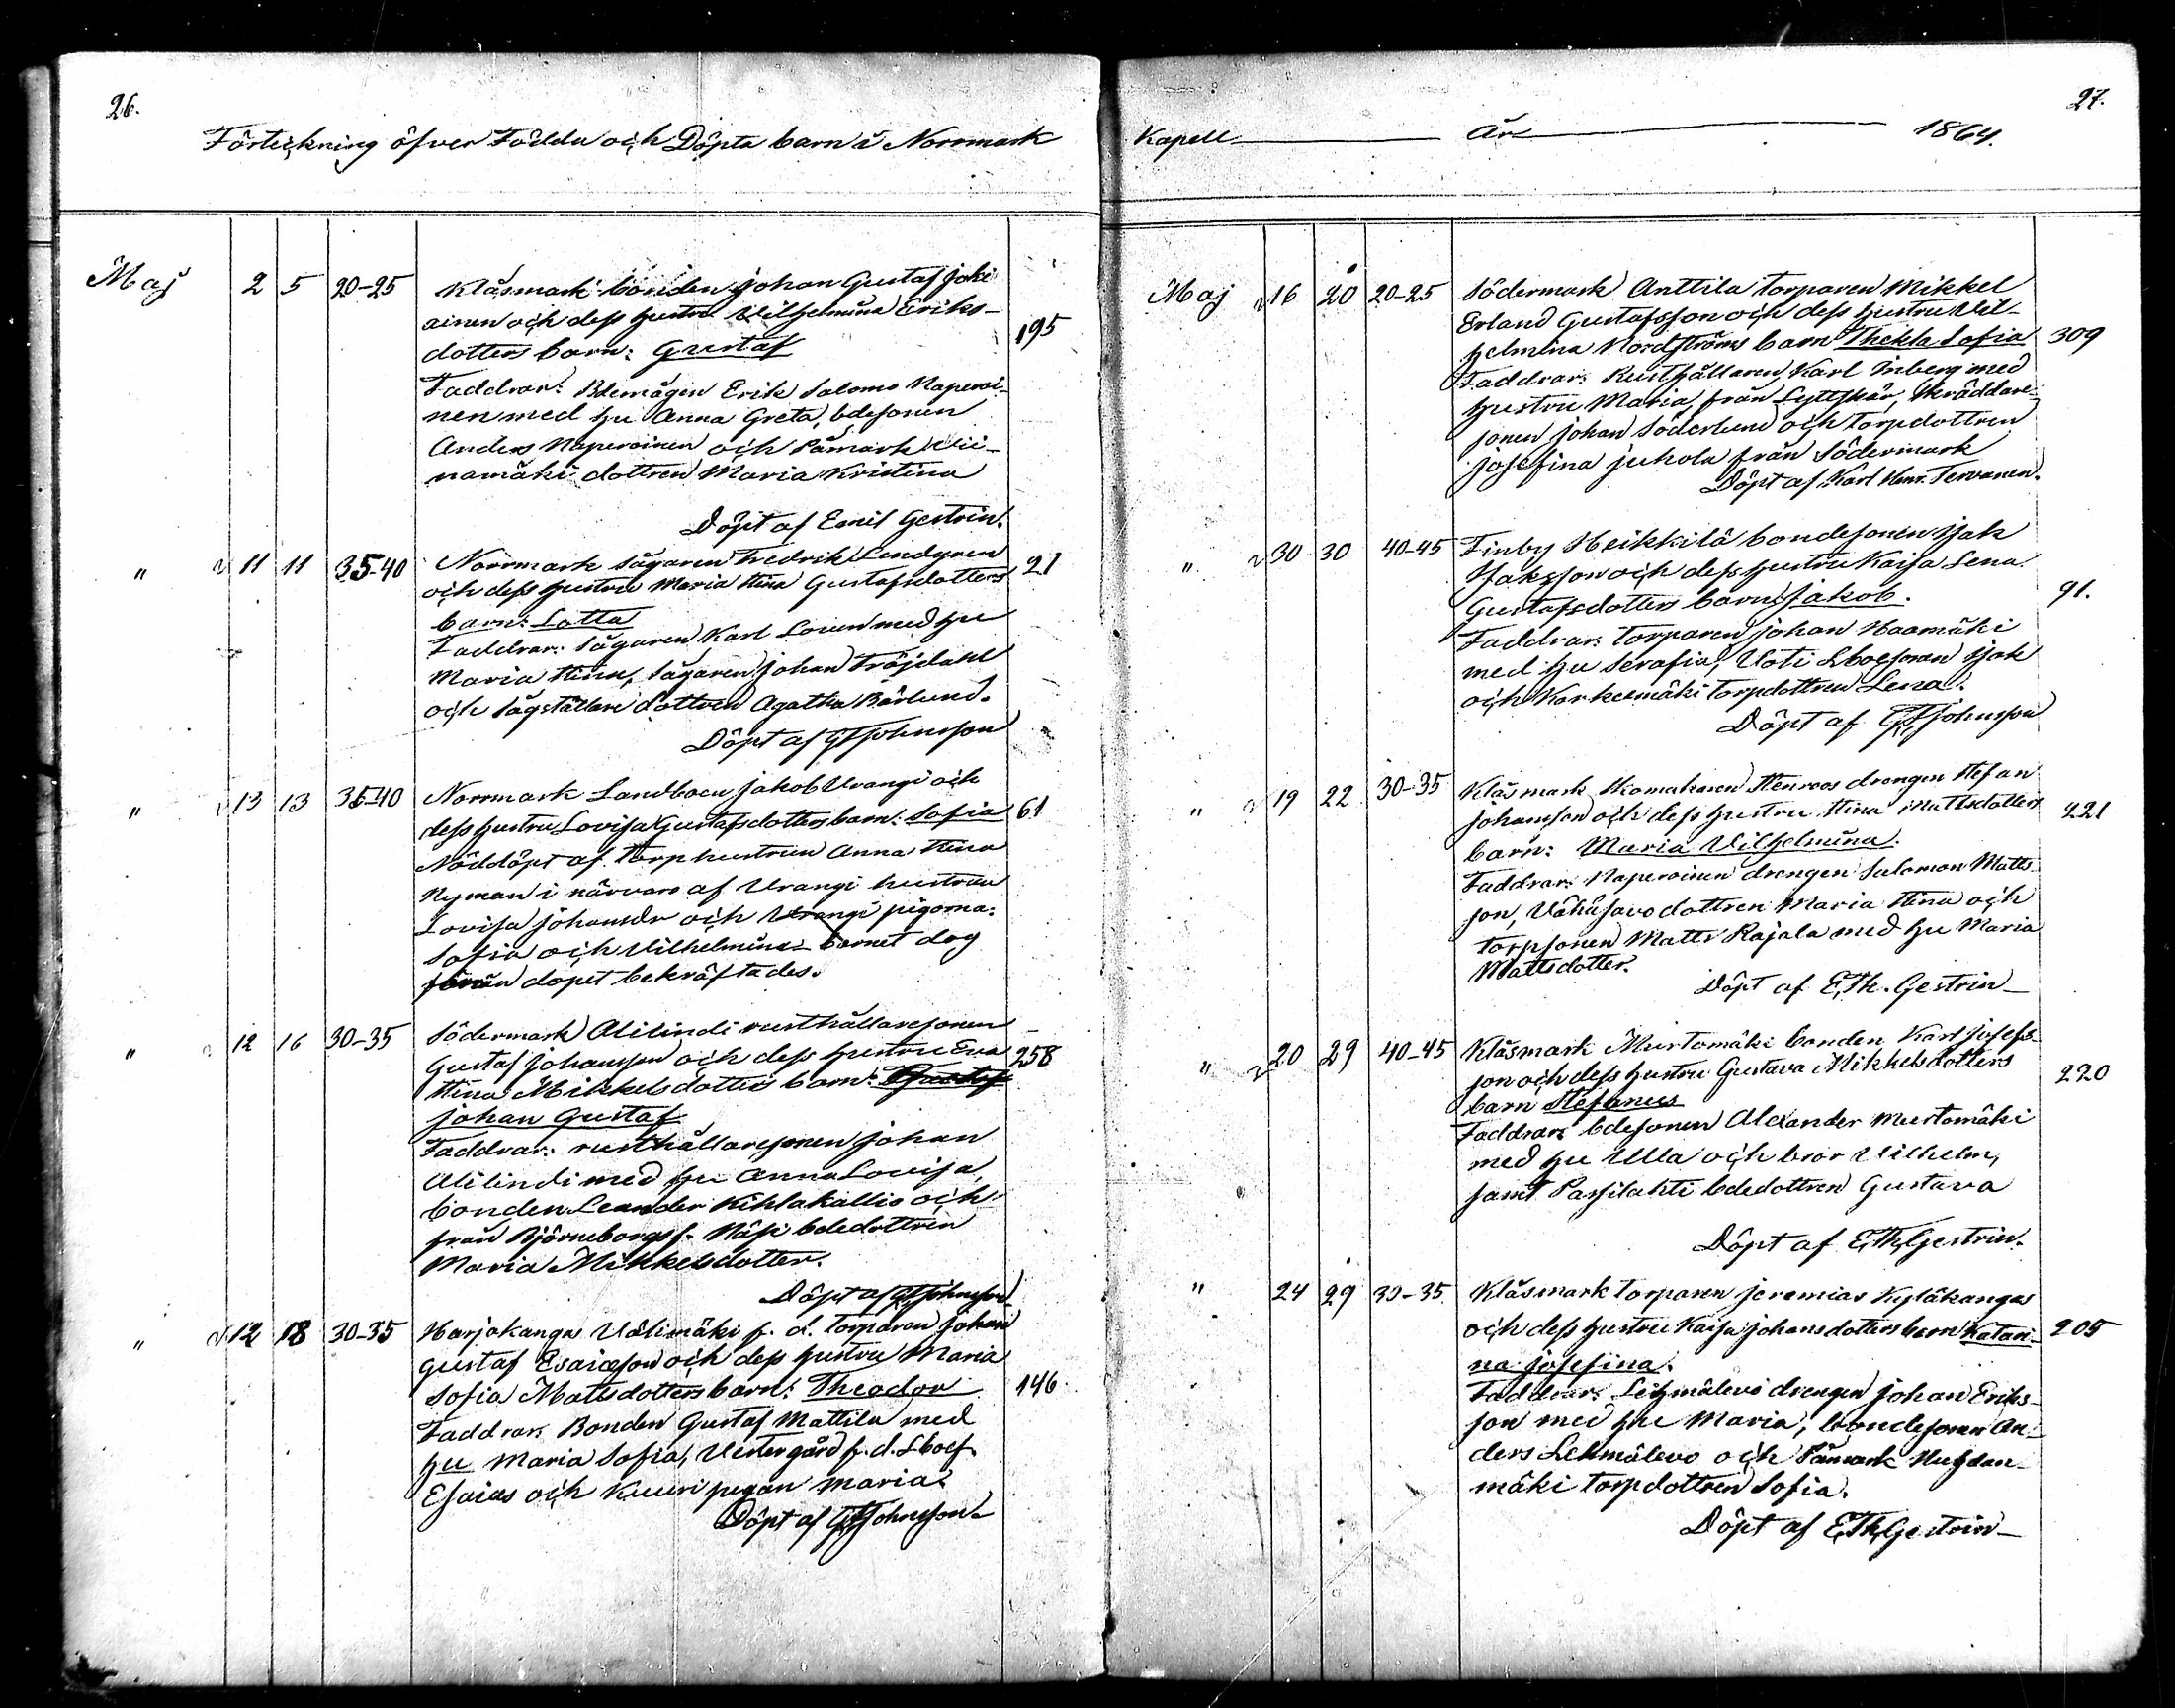 26.
Förteckning öfver Födda och Döpta barn i Norrmark
Maj 2 5 20-25 Klåsmark bonden Johan Gustaf Joki
ainen och dess hustru Vilhelmina Eriks-
dotters barn: Gustaf 195
Faddrar: Bdemågen Erik Salomo Naperoi-
nen med hu Anna Greta, bdesonen
Anders Naperoinen och Påmark
namäki dottren Maria Kristina
Döpt af Emil Gestrin.
" 11 11 35-40 Norrmark sågaren Fredrik Lindgren 21
och dess hustru Maria Stina Gustafsdotters
barn: Lotta
Faddrar: Sågaren Karl Loren med hu
Maria Stina, sågaren Johan Fröjdahl
och sågställare dottren Agatha Bärlund.
Döpt af GFJohnsson
" 13 13 35-40 Norrmark Landboen Jakob Vrangi och
dess hustru Lovisa Gustafsdotters barn: Sofia 61
Nöddöpt af Torphustrun Anna Stina
Nyman i närvaro af Vrangi hustrun
Lovisa Johansdr och Vrangi pigorna:
Sofia och Vilhelmina - barnet dog
förrän dopet bekräftades.
" 12 16 30-35 Södermark Alilindi rusthållaresonen
Gustaf Johansson och dess hustru Eva 258
Stina Mikkelsdotters barn: Gustaf
Johan Gustaf
Faddrar: rusthållaresonen Johan
Alilindi med hu Anna Lovisa,
bonden Leander Kihlakallio och
från Björneborgs f. Näsi bdedottren
Maria Mikkelsdotter.
Döpt af GFJohnsson
" 12 18 30-35 Harjakangas Välimäki f. d. torparen Johan
Gustaf Esaiasson och dess hustru Maria
Sofia Mattsdotters barn: Theodor 146
Faddrar: Bonden Gustaf Mattila med
hu Maria Sofia, Vestergård f. d. Lboef.
Esaias och Kuuri pigan Maria.
Döpt af GFJohnsson
27.
Kapell År 1864.
Maj 16 20 20-25 Södermark Anttila torparen Mikkel
Erland Gustafsson och dess hustru Vil-
helmina Nordströms barn Thekla Sofia 309
Faddrar: Rusthållaren Karl Inberg med
hustru Maria, från Lyttskär, Skräddare-
sonen Johan Söderlund och torpdottren
Josefina Juhola från Södermark
Döpt af Karl Henr. Tervanen.
" 30 30 40-45 Finby Heikkilä bondesonen Isak
Isaksson och dess hustru Kaisa Lena
Gustafsdotters barn: Jakob. 91.
Faddrar: torparen Johan Haamäki
med hu Serafia, Voti Lboesonen Isak
och Korkeemäki torpdottren Lena.
Döpt af GFJohnsson
" 19 22 30-35 Klåsmark Skomakaren Stenroos drengen Stefan
Johansson och dess hustru Stina Mattsdotters 221
barn: Maria Vilhelmina.
Faddrar: Naperoinen drengen Salomon Matts-
son, Vähäsavo dottren Maria Stina och
torpsonen Matts Rajala med hu Maria
Mattsdotter.
Döpt af E,Th. Gestrin
" 20 29 40-45 Klåsmark Murtomäki bonden Karl Josefs-
son och dess hustru Gustava Mikkelsdotters 220
barn Stefanus
Faddrar: bdesonen Alexander Murtomäki
med hu Ulla och bror Vilhelm,
samt Passilahti bdedottren Gustava
Döpt af E,Th,Gestrin.
" 24 29 30-35 Klåsmark torparen Jeremias Kyläkangas
och dess hustru Kaisa Johansdotters barn Katari- 205
na Josefina.
Faddrar: Lehmälevo drengen Johan Eriks-
son med hu Maria, bondesonen An-
ders Lehmälevo och Påmark Huhdan-
mäki torpdottren Sofia.
Döpt af E,Th,Gestrin